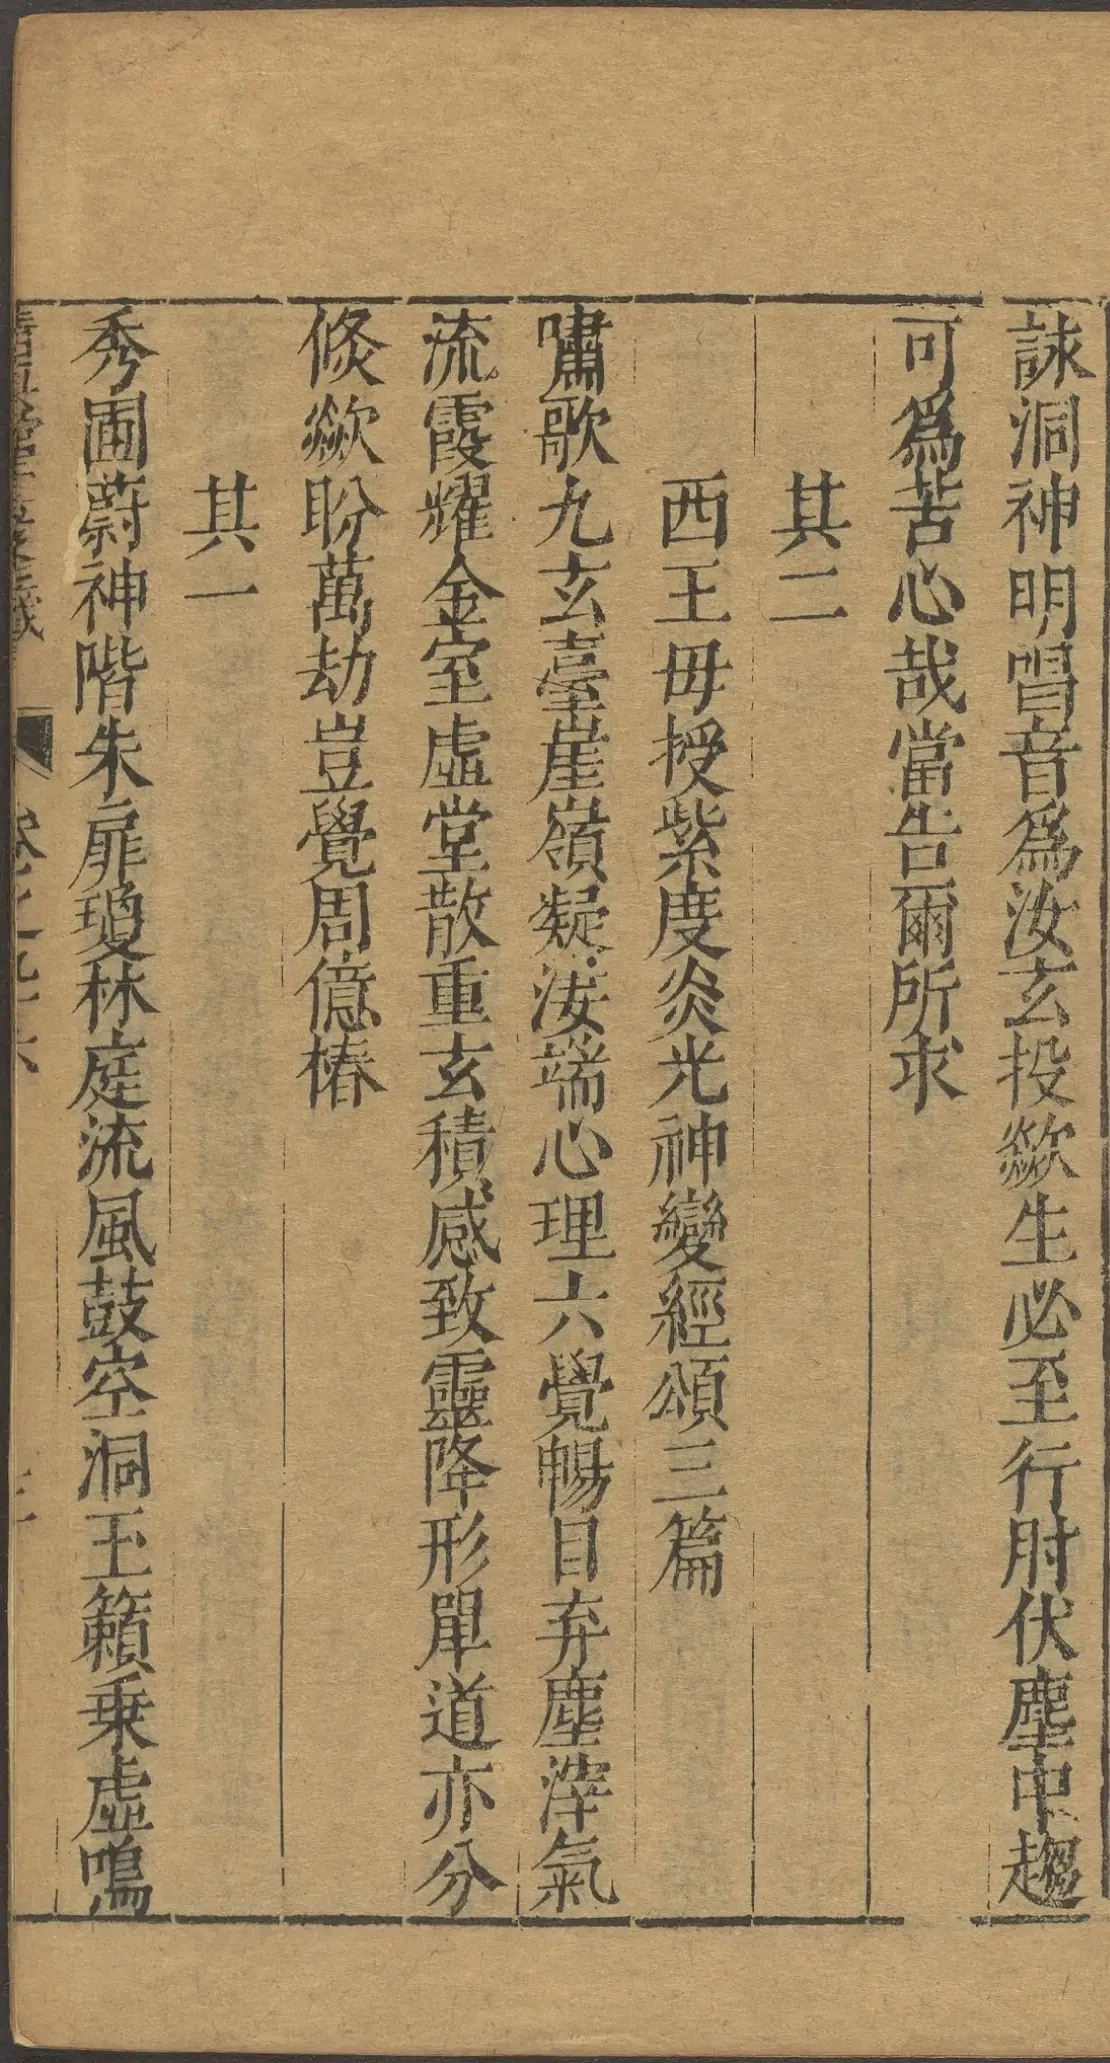 詸洞神明唱音為汝玄投歘生必至行肘伏塵中趨
可為苦心哉當告爾所求
其二
西王毋授紫度炎光神變經頌三篇
嘯歌九玄臺崖嶺凝淒端心理六覺暢目弃塵滓氣
流霞耀金室虛堂散重玄積感致靈降形單道亦分
倐歘盼萬劫豈覺周億椿
其一
秀圃蔚神階朱扉瓊林庭流風鼓空洞玉籟乗虛鳴